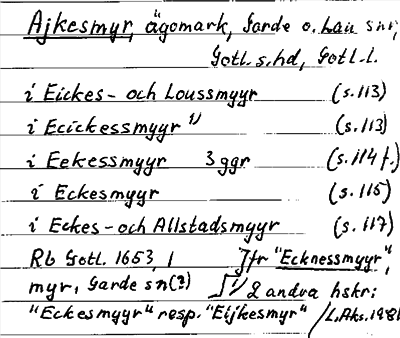 Ajkesmyr, ägomark, Garde o. Lau snr,
Gotl. s. hd, Gotl. l.
i Eickes- och Loussmyyr (s. 113)
i Ecickessmyyr 1) (s. 113)
i Eekessmyyr 3 ggr (s. 114 f.)
i Eckesmyyr (s. 115)
i Eckes- och Allstadsmyyr (s. 117)
Rb Gotl. 1653, 1 Jfr "Ecknessmyyr",
myr, Garde sn(?) 1) 2 andra hskr:
"Eckesmyyr" resp. "Eijkesmyr" / L. Aks. 1981